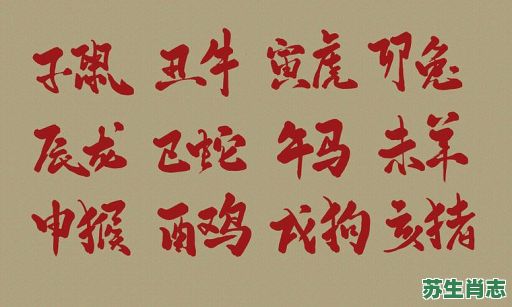 子鼠 丑牛 寅虎 卯兔
辰龙 巳蛇 午马 未羊
申猴 酉鸡 戌狗 亥猪
苏生肖志